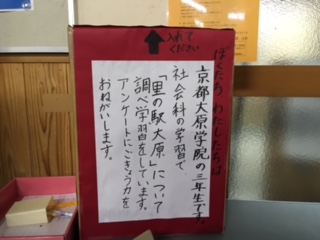 入れて
ください
ぼくたち、わたしたちは
京都大原学院の三年生です。
社会科の学習で
「里の駅大原」について
調べ学習をしています。
アンケートにごきょう力を
おねがいします。